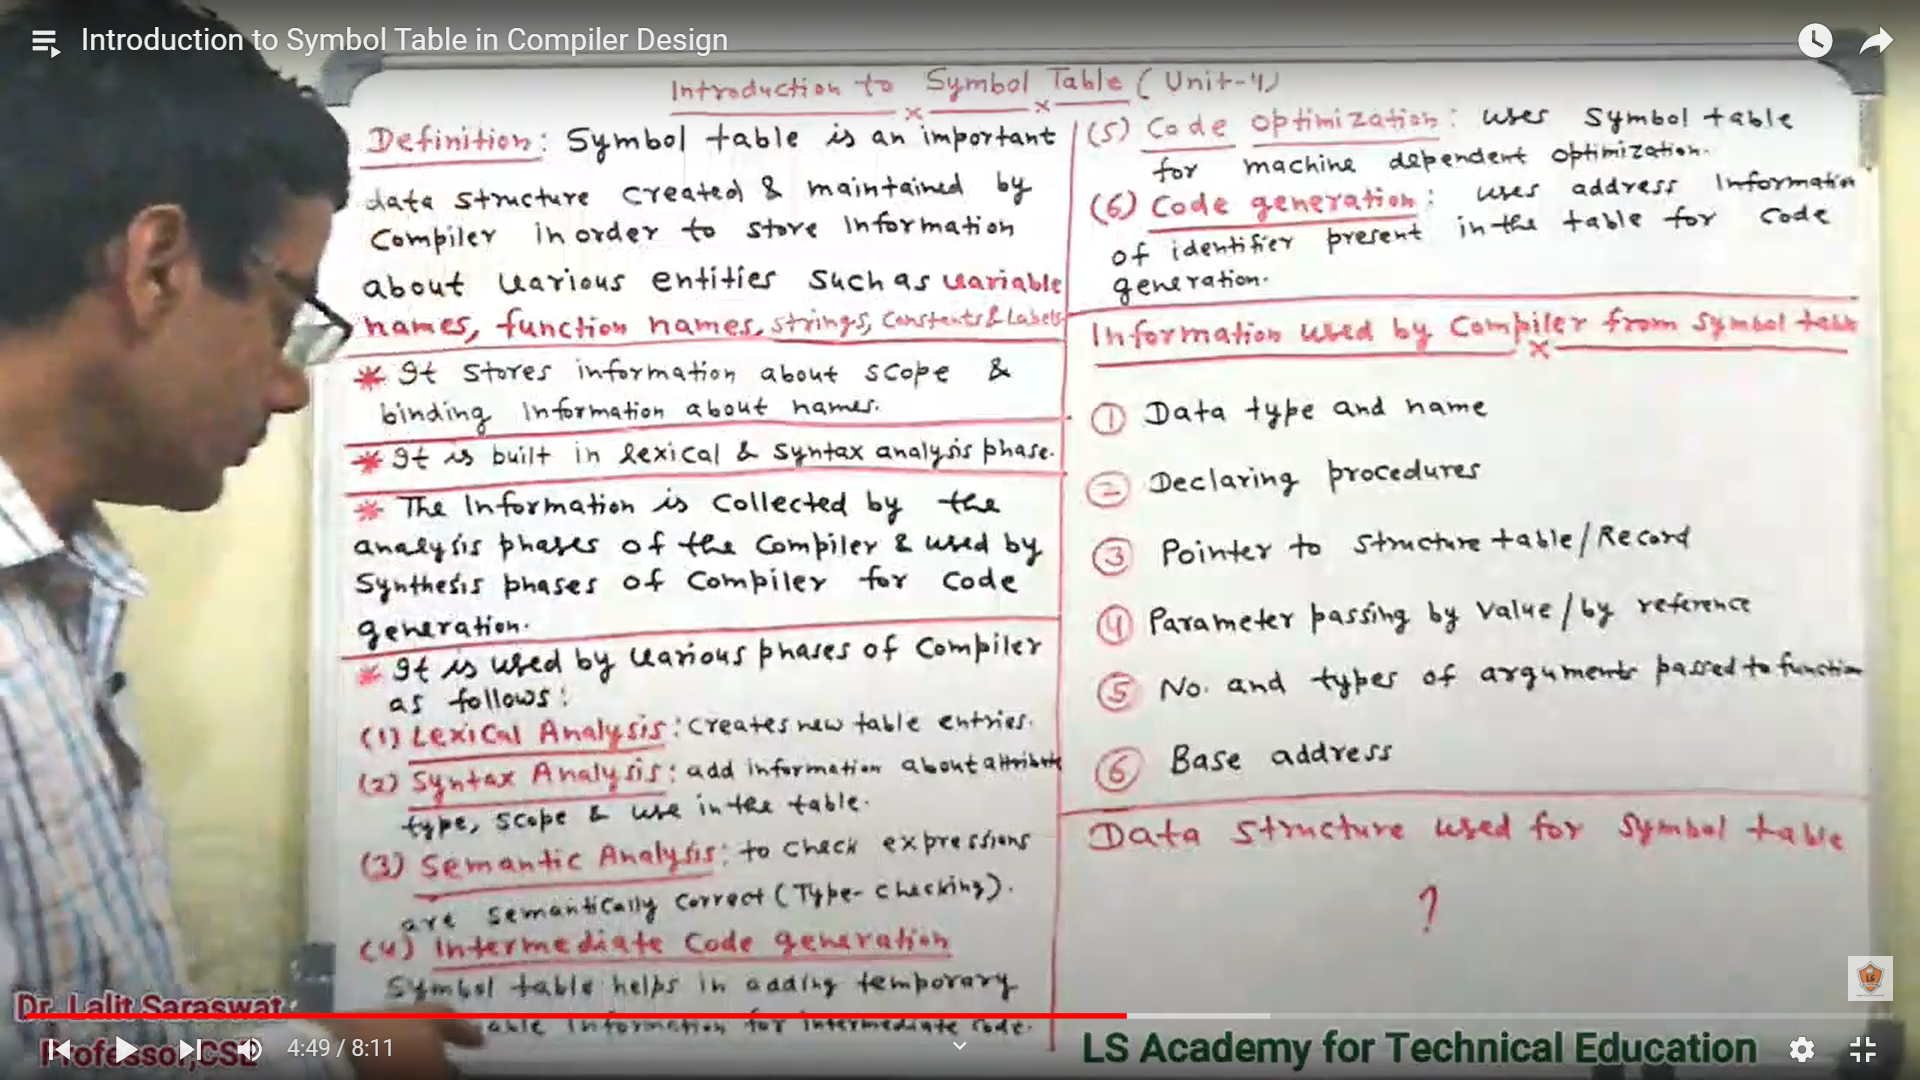 Introduction to Symbol Table in Compiler Design
Introduction to Symbol Table (Unit-4)
Definition: Symbol table is an important
data structure created & maintained by
Compiler in order to store Information
about various entities such as variable
names, function names, strings, Constants & Labels
* It stores information about scope &
binding information about names.
* It is built in lexical & syntax analysis phase.
* The Information is Collected by the
analysis phases of the Compiler & used by
Synthesis phases of Compiler for Code
generation.
* It is used by various phases of Compiler
as follows:
(1) Lexical Analysis: Creates new table entries.
(2) Syntax Analysis: add information about attribute
type, scope & use in the table.
(3) Semantic Analysis: to check expressions
are semantically correct (Type-checking).
(4) Intermediate Code generation
Symbol table helps in adding temporary
able Information for intermediate code.
(5) Code optimization: uses Symbol table
for machine dependent optimization.
(6) Code generation: uses address Information
of identifier present in the table for code
generation.
Information used by Compiler from symbol table
① Data type and name
② Declaring procedures
③ Pointer to structure table/Record
④ Parameter passing by Value/by reference
⑤ No. and types of arguments passed to function
⑥ Base address
Data structure used for Symbol table
?
Dr. Lalit Saraswat
Professor,CSE
4:49 / 8:11
LS Academy for Technical Education